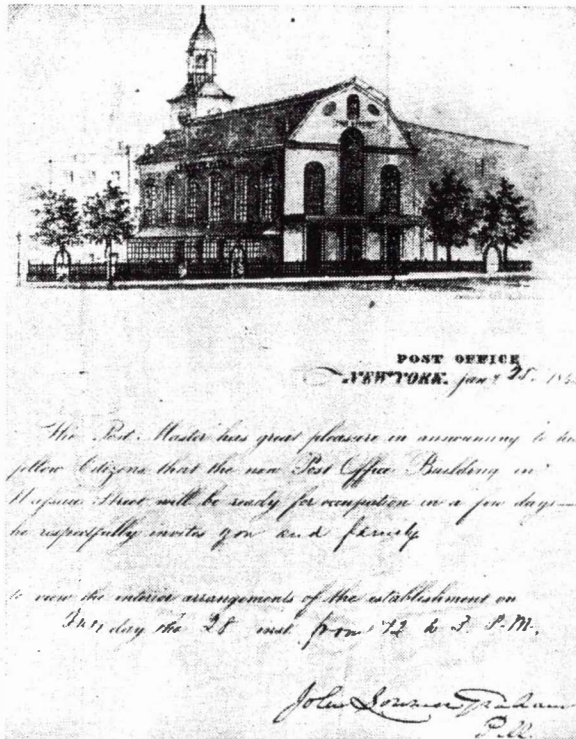 POST OFFICE
NEW YORK. Jany 25. 184
The Post Master has great pleasure in announcing to his
fellow Citizens that the new Post Office Building in
Nassau Street will be ready for occupation in a few days—
he respectfully invites you and family
to view the interior arrangements of the establishment on
day the 28 inst. from 12 to 3. P.M.
John Lorimer Graham
P.M.